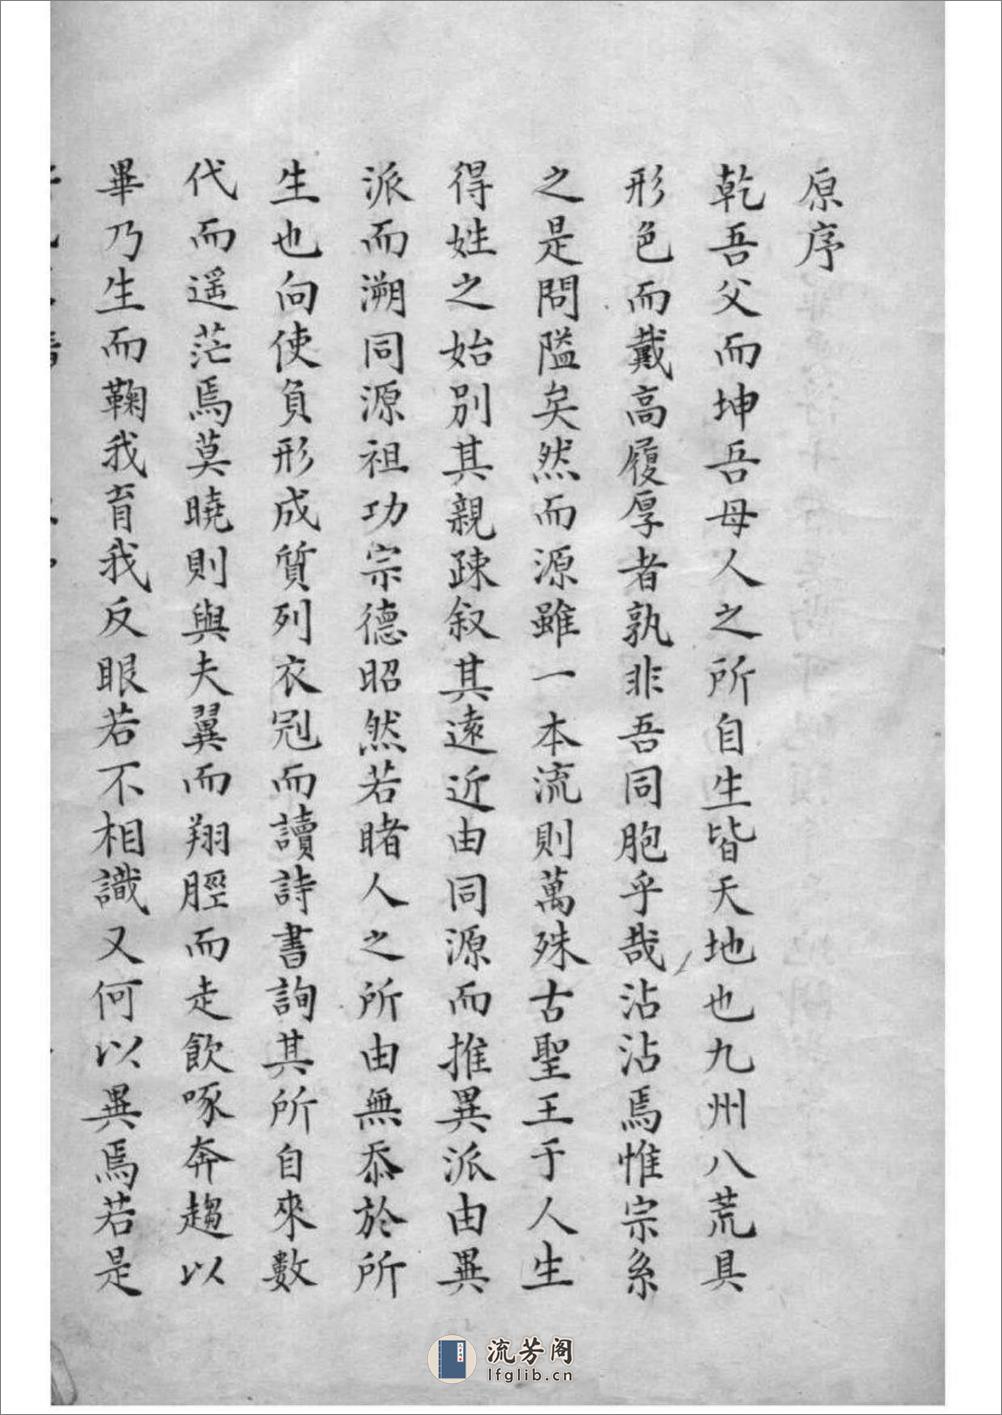 原序
乾吾父而坤吾母人之所自生皆天地也九州八荒具
形色而戴高履厚者孰非吾同胞乎哉沾沾焉惟宗系
之是問隘矣然而源雖一本流則萬殊古聖王于人生
得姓之始別其親疎叙其遠近由同源而推異派由異
派而溯同源祖功宗德昭然若睹人之所由無忝於所
生也向使負形成質列衣冠而讀詩書詢其所自來數
代而遥茫焉莫曉則與夫翼而翔脛而走飲啄奔趨以
畢乃生而鞠我育我反眼若不相識又何以異焉若是
流芳阁
lfglib.cn